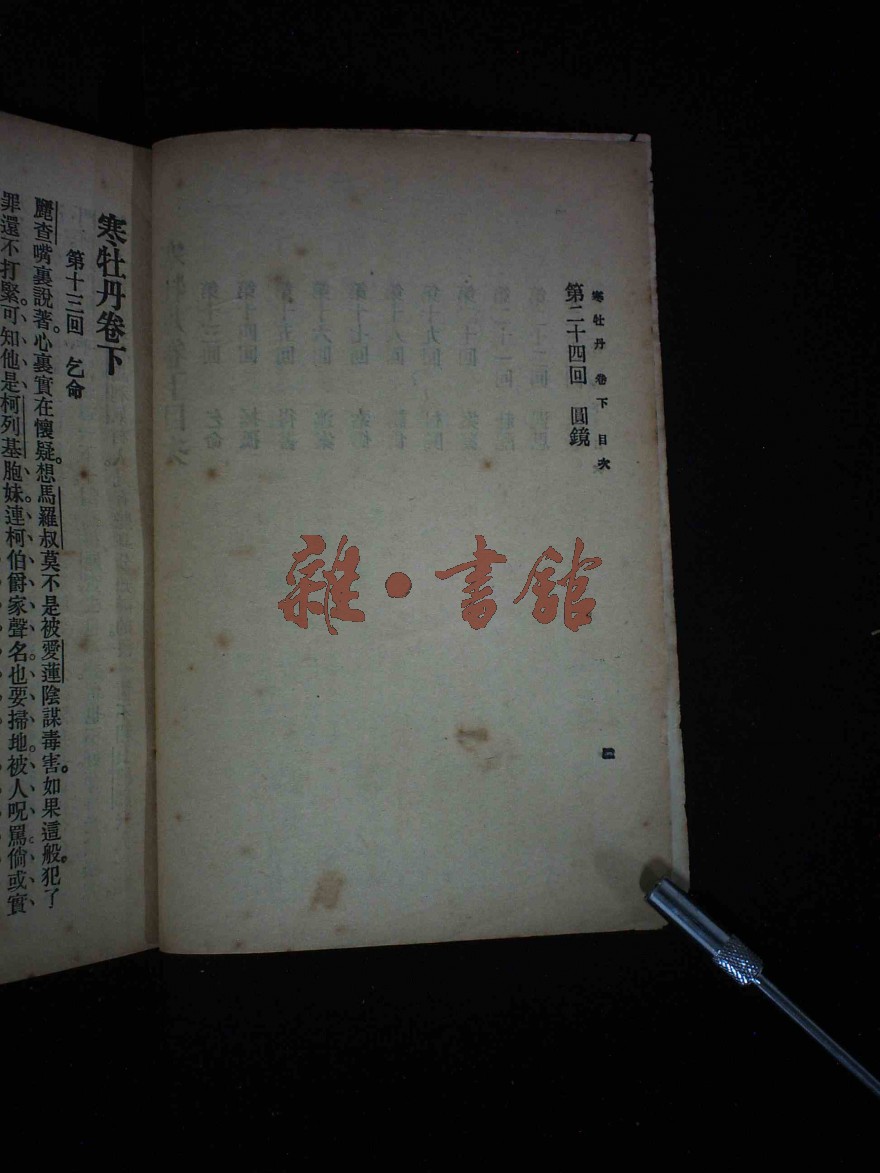 寒牡丹 卷下 目次
第二十四回 圓鏡
二
雜·書館
寒牡丹卷下
第十三回 乞命
麗查嘴裏說著。心裏實在懷疑。想馬羅叔莫不是被愛蓮陰謀毒害。如果這般。犯了
罪還不打緊。可知他是柯列基胞妹。連柯伯爵家聲名也要掃地。被人呪罵。倘或實